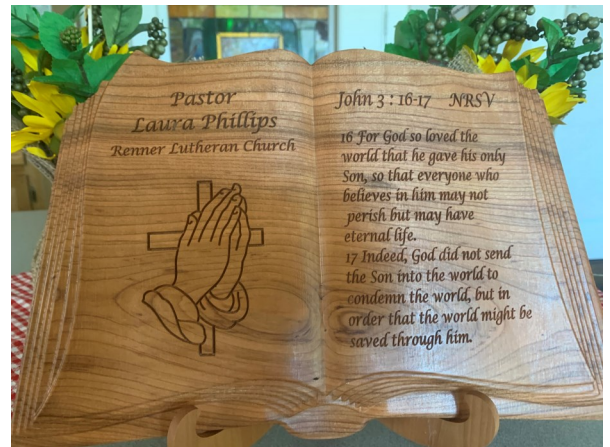 Pastor
Laura Phillips
Renner Lutheran Church
John 3 : 16-17 NRSV
16 For God so loved the
world that he gave his only
Son, so that everyone who
believes in him may not
perish but may have
eternal life.
17 Indeed, God did not send
the Son into the world to
condemn the world, but in
order that the world might be
saved through him.